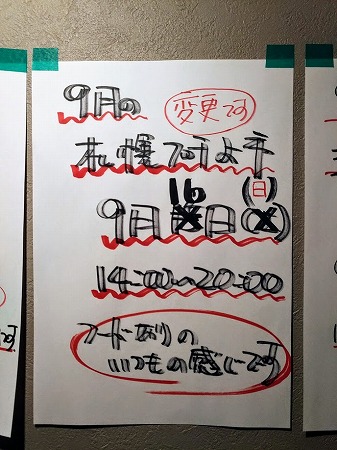 9月の
変更です
札幌プチよ市
9月16日(日)
14:00〜20:00
フードありの
いつもの感じです